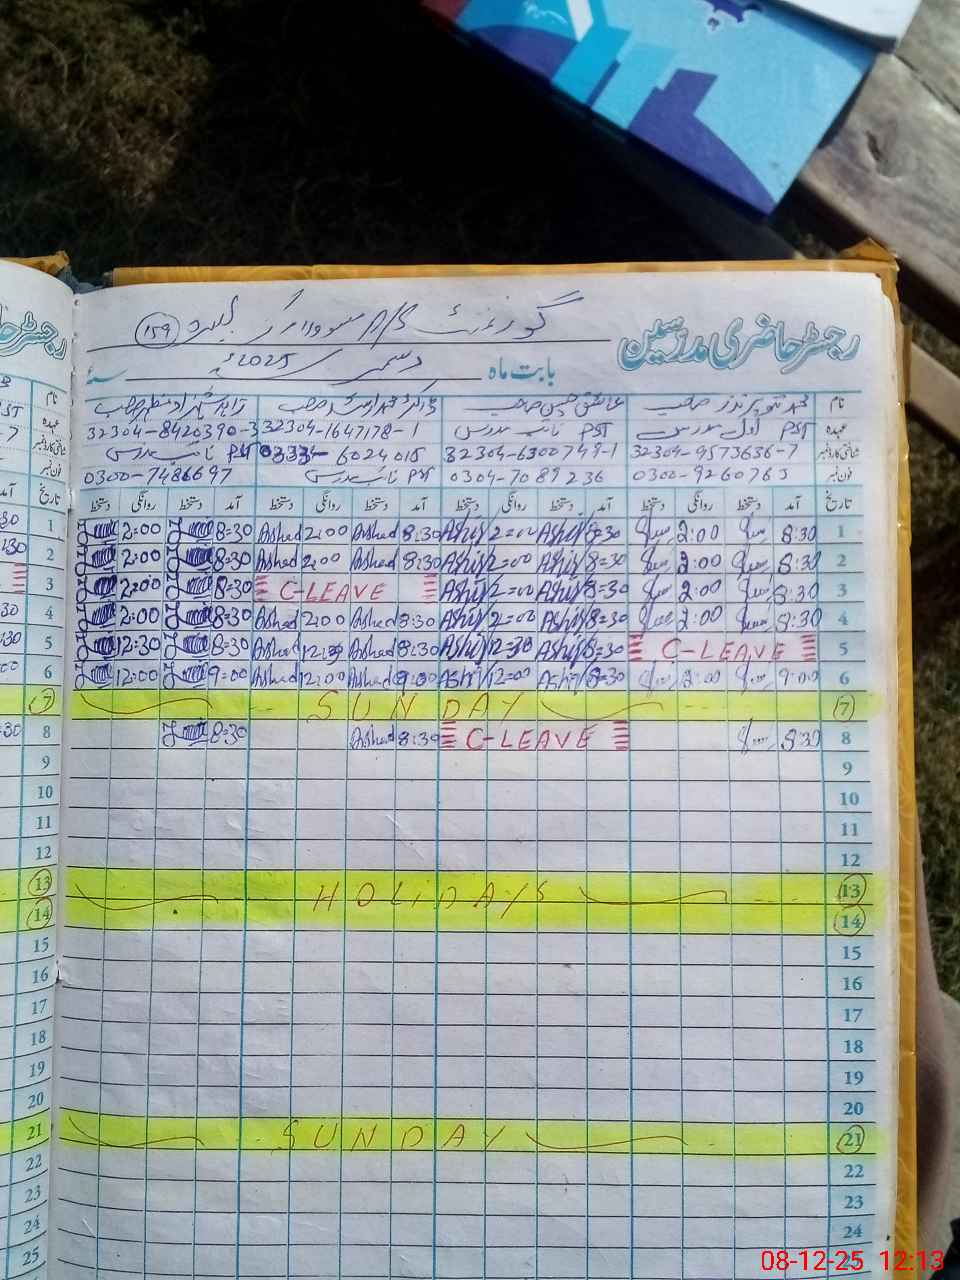 رجسٹر حاضری مدرسین گورنمنٹ P/S 159
بابت ماہ دسمبر 2025ء سنۂ
نام محمد تنویر پرویز صاحب عاشق حسین صاحب ڈاکٹر محمد ارشد صاحب
عہدہ PST اول مدرس PST نائب مدرس 32304-1647178-1 32304-8420390-3
شناختی کارڈ نمبر 32304-9573636-7 32304-6300749-1 0334-6024015 PST نائب مدرس
فون نمبر 0300-9260763 0304-7089236 PST نائب مدرس 0300-7486697
تاریخ آمد دستخط روانگی دستخط آمد دستخط روانگی دستخط آمد دستخط روانگی دستخط آمد دستخط روانگی دستخط
1 8:30 2:00 8=30 Ashiq 2=00 Ashiq 8:30 Ashad 2:00 Ashad 8=30 2:00 1
2 8:30 2:00 8=30 Ashiq 2=00 Ashiq 8:30 Ashad 2:00 Ashad 8=30 2:00 2
3 8:30 2:00 8=30 Ashiq 2=00 Ashiq C-LEAVE 8=30 2:00 3
4 8:30 2:00 8=30 Ashiq 2=00 Ashiq 8:30 Ashad 2:00 Ashad 8=30 2:00 4
5 C-LEAVE 8=30 Ashiq 12=30 Ashiq 8:30 Ashad 12:30 Ashad 8=30 12:30 5
6 9:00 8=30 Ashiq 12=00 Ashiq 9:00 Ashad 12:00 Ashad 9=00 12:00 6
7 SUNDAY 7
8 8:30 C-LEAVE 8:30 Ashad 8=30 8
9 9
10 10
11 11
12 12
13 HOLIDAYS 13
14 14
15 15
16 16
17 17
18 18
19 19
20 20
21 SUNDAY 21
22 22
23 23
24 24
25
08-12-25 12:13